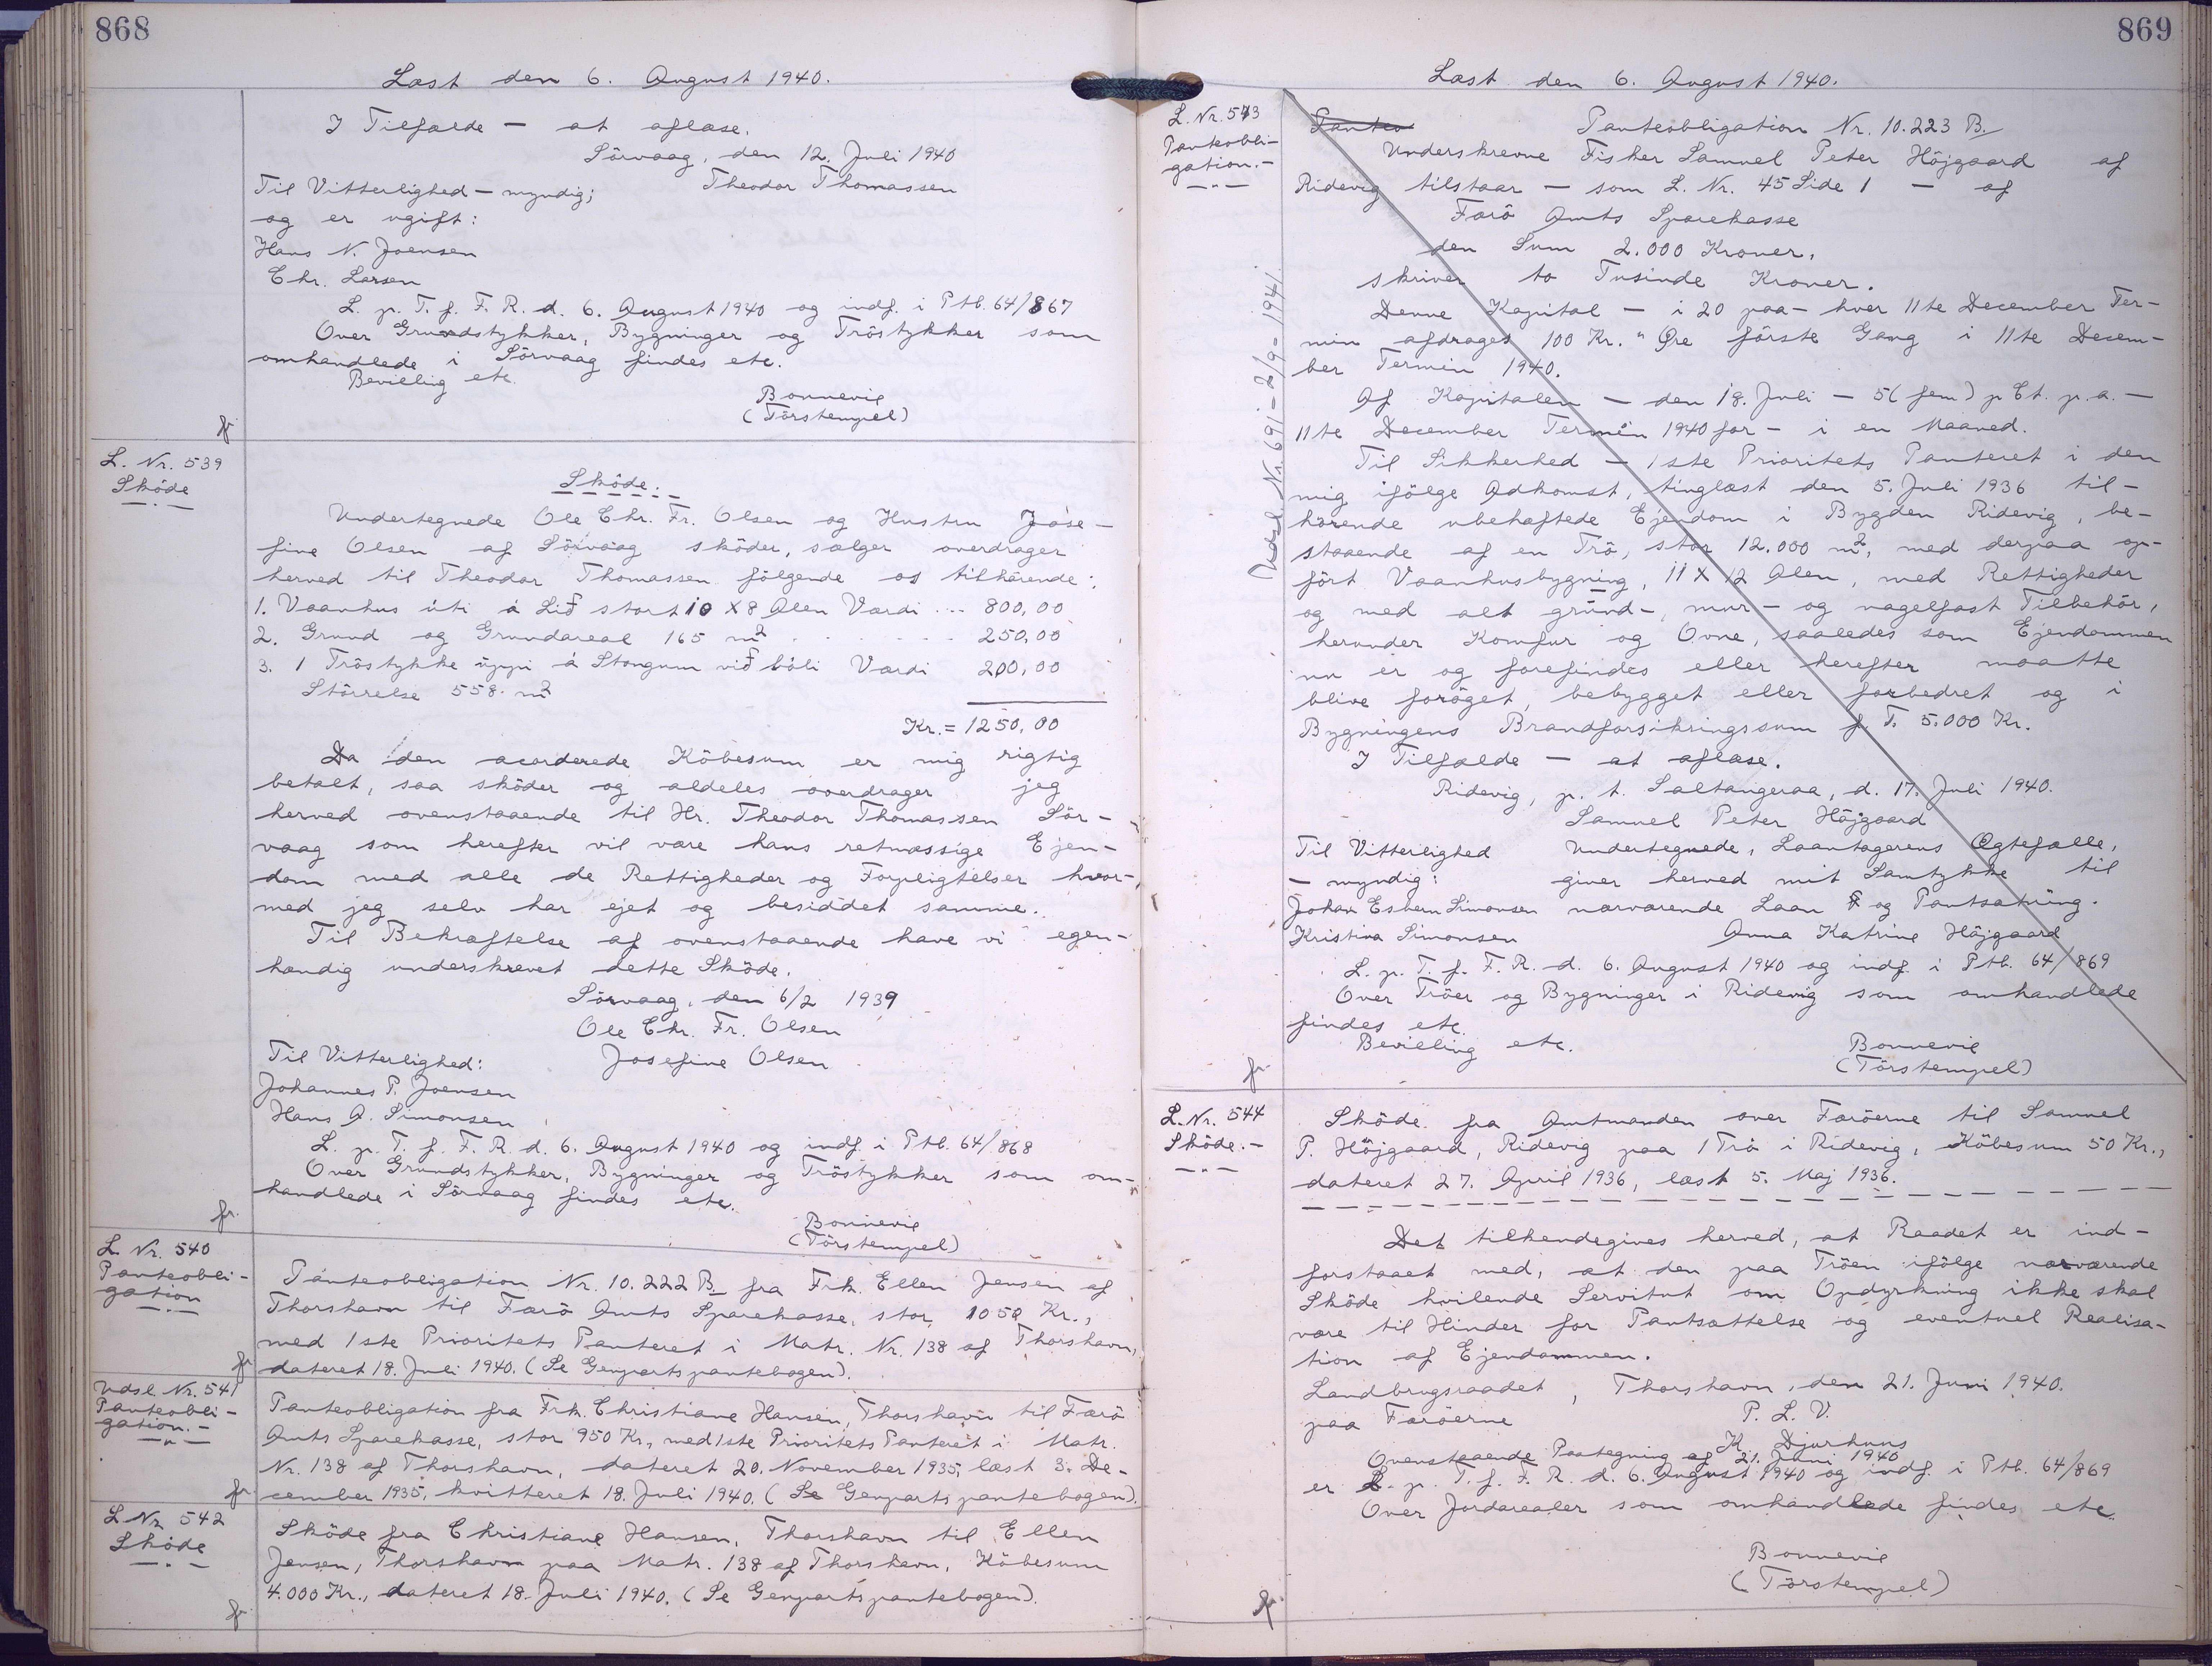 868
Læst den 6. August 1940.
I Tilfælde — at aflæse.
Sörvaag, den 12. Juli 1940
Til Vitterlighed — myndig;
Theodor Thomassen
og er ugift:
Hans N. Joensen
Chr. Larsen
L. p. T. f. F. R. d. 6. August 1940 og indf. i Ptb. 64/867
Over Grundstykker, Bygninger og Tröstykker som
omhandlede i Sörvaag findes etc.
Bevilling etc.
Bonnevie
(Törstempel)
fr.
L. Nr. 539
Sköde
Sköde.
Undertegnede Ole Chr. Fr. Olsen og Hustru Jose-
fine Olsen af Sörvaag sköder, sælger overdrager
herved til Theodor Thomassen fölgende os tilhörende:
1. Vaanhus úti á Lið stort 10 X 8 Alen Værdi .... 800,00
2. Grund og Grundareal 165 m² . . . . . . 250,00
3. 1 Tröstykke uppi á Stongum við bóli Værdi 200,00
Störrelse 558. m²
Kr. = 1250,00
Da den acorderede Köbesum er mig rigtig
betalt, saa sköder og aldeles overdrager jeg
herved ovenstaaende til Hr. Theodor Thomassen Sör-
vaag som herefter vil være hans retmæssige Ejen-
dom med alle de Rettigheder og Forpligtelser hvor-
med jeg selv har ejet og besiddet samme.
Til Bekræftelse af ovenstaaende have vi egen-
hændig underskrevet dette Sköde.
Sörvaag, den 6/2 1939
Ole Chr. Fr. Olsen
Til Vitterlighed:
Josefine Olsen
Johannes P. Joensen
Hans A. Simonsen
L. p. T. f. F. R. d. 6. August 1940 og indf. i Ptb. 64/868
Over Grundstykker, Bygninger og Tröstykker som om-
handlede i Sörvaag findes etc.
Bonnevie
(Törstempel)
fr.
L. Nr. 540
Panteobli-
gation
Panteobligation Nr. 10.222 B. fra Frk. Ellen Jensen af
Thorshavn til Færö Amts Sparekasse, stor 1050 Kr.,
med 1ste Prioritets Panteret i Matr. Nr. 138 af Thorshavn,
dateret 18. Juli 1940. (Se Genpartspantebogen).
fr.
Udsl. Nr. 541
Panteobli-
gation.-
Panteobligation fra Frk. Christiane Hansen, Thorshavn til Færö
Amts Sparekasse, stor 950 Kr., med 1ste Prioritets Panteret i Matr.
Nr. 138 af Thorshavn, dateret 20. November 1935, læst 3. De-
cember 1935, kvitteret 18. Juli 1940. (Se Genpartspantebogen).
fr.
L. Nr. 542
Sköde
Sköde fra Christiane Hansen, Thorshavn til Ellen
Jensen, Thorshavn paa Matr. 138 af Thorshavn, Köbesum
4.000 Kr., dateret 18. Juli 1940. (Se Genpartspantebogen).
fr.
869
Læst den 6. August 1940.
L. Nr. 543
Panteobli-
gation.-
Udsl. Nr. 691 - 2/9 - 1941.
Panteo
Panteobligation Nr. 10.223 B.
Underskrevne Fisker Samuel Peter Höjgaard af
Ridevig tilstaar — som L. Nr. 45 Side 1 — af
Færö Amts Sparekasse
den Sum 2.000 Kroner,
skriver to Tusinde Kroner.
Denne Kapital — i 20 paa — hver 11te December Ter-
min afdrages 100 Kr. " Øre förste Gang i 11te Decem-
ber Termin 1940.
Af Kapitalen — den 18. Juli — 5 (fem) p Ct. p. a. —
11te December Termin 1940 for — i en Maaned.
Til Sikkerhed — 1ste Prioritets Panteret i den
mig ifölge Adkomst, tinglæst den 5. Juli 1936 til-
hörende ubehæftede Ejendom i Bygden Ridevig, be-
staaende af en Trö, stor 12.000 m², med derpaa op-
fört Vaanhusbygning, 11 X 12 Alen, med Rettigheder
og med alt grund-, mur- og nagelfast Tilbehör,
herunder Komfur og Ovne, saaledes som Ejendommen
nu er og forefindes eller herefter maatte
blive foröget, bebygget eller forbedret og i
Bygningens Brandforsikringssum f. T. 5.000 Kr.
I Tilfælde — at aflæse.
Ridevig, p. t. Saltangeraa, d. 17. Juli 1940.
Samuel Peter Höjgaard
Til Vitterlighed
Undertegnede, Laantagerens Ægtefælle,
— myndig:
giver herved mit Samtykke til
Johan Esbern Simonsen
nærværende Laan og Pantsætning.
Kristina Simonsen
Anna Katrine Höjgaard
L. p. T. f. F. R. d. 6. August 1940 og indf. i Ptb. 64/869
Over Tröer og Bygninger i Ridevig som omhandlede
findes etc.
Bevilling etc.
Bonnevie
(Törstempel)
fr.
L. Nr. 544
Sköde.-
Sköde fra Amtmanden over Færöerne til Samuel
P. Höjgaard, Ridevig paa 1 Trö i Ridevig, Köbesum 50 Kr.,
dateret 27. April 1936, læst 5. Maj 1936.
Det tilkendegives herved, at Raadet er ind-
forstaaet med, at den paa Tröen ifölge nærværende
Sköde hvilende Servitut om Opdyrkning ikke skal
være til Hinder for Pantsættelse og eventuel Realisa-
tion af Ejendommen.
Landbrugsraadet, Thorshavn, den 21. Juni 1940.
paa Færöerne
P. L. V.
K. Djurhuus
Ovenstaaende Paategning af 21. Juni 1940
er L. p. T. f. F. R. d. 6. August 1940 og indf. i Ptb. 64/869
Over Jordarealer som omhandlede findes etc.
Bonnevie
(Törstempel)
fr.